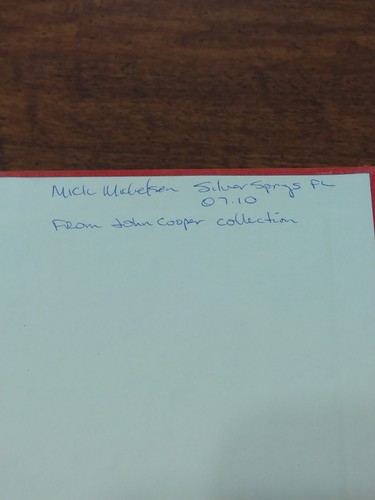 Mick Michelsen Silver Sprgs FL
07.10
From John Cooper collection